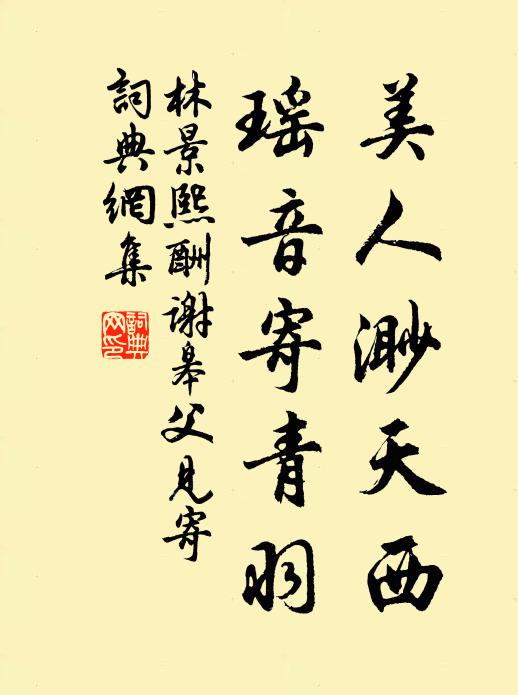 美人渺天西
瑶音寄青羽
林景熙酬谢皋父见寄
詞典網集
詞典
网印